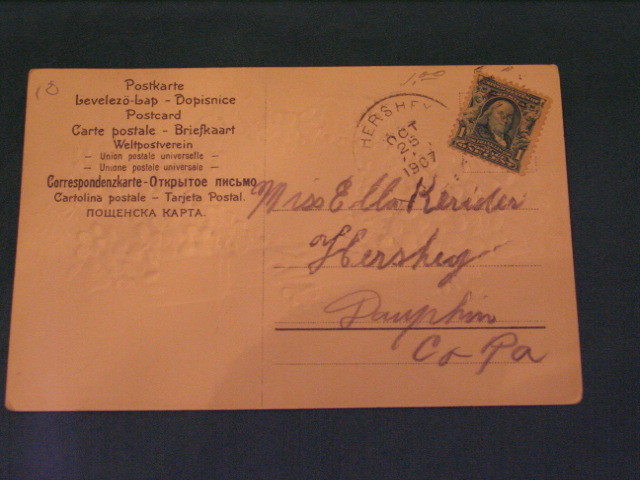 18
1.00
Postkarte
Levelező-Lap - Dopisnice
Postcard
Carte postale - Briefkaart
Weltpostverein
— Union postale universelle —
— Unione postale universale —
Correspondenzkarte-Открытое письмо
Cartolina postale - Tarjeta Postal.
ПОЩЕНСКА КАРТА.
HERSHEY
OCT
25
1907
Miss Ella
Hershey
Dauphin
Co Pa